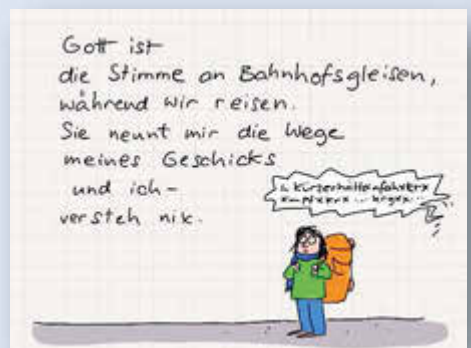 Gott ist
die Stimme an Bahnhofsgleisen,
während wir reisen.
Sie nennt mir die Wege
meines Geschicks
und ich -
versteh nix.